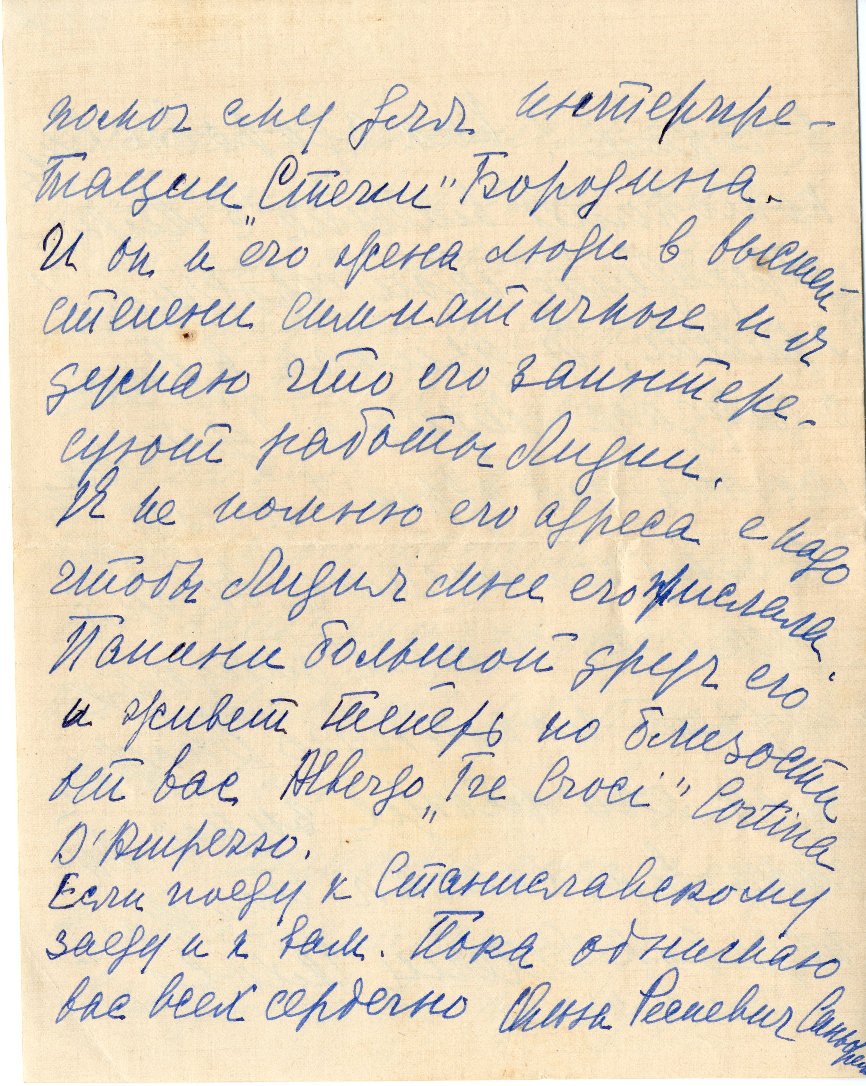 помог ему для интерпре-
тации „Степи" Бородина.
И он и его жена люди в высшей
степени симпатичные и я
думаю что его заинтере-
суют работы Лидии.
Я не помню его адреса и надо
чтобы Лидия мне его прислала.
Панини большой друг его
и живет теперь по близости
от вас Albergo „Tre Croci" Cortina
D'Ampezzo.
Если поеду к Станиславскому
заеду и к вам. Пока обнимаю
вас всех сердечно Ольга Ресневич Синьорелли